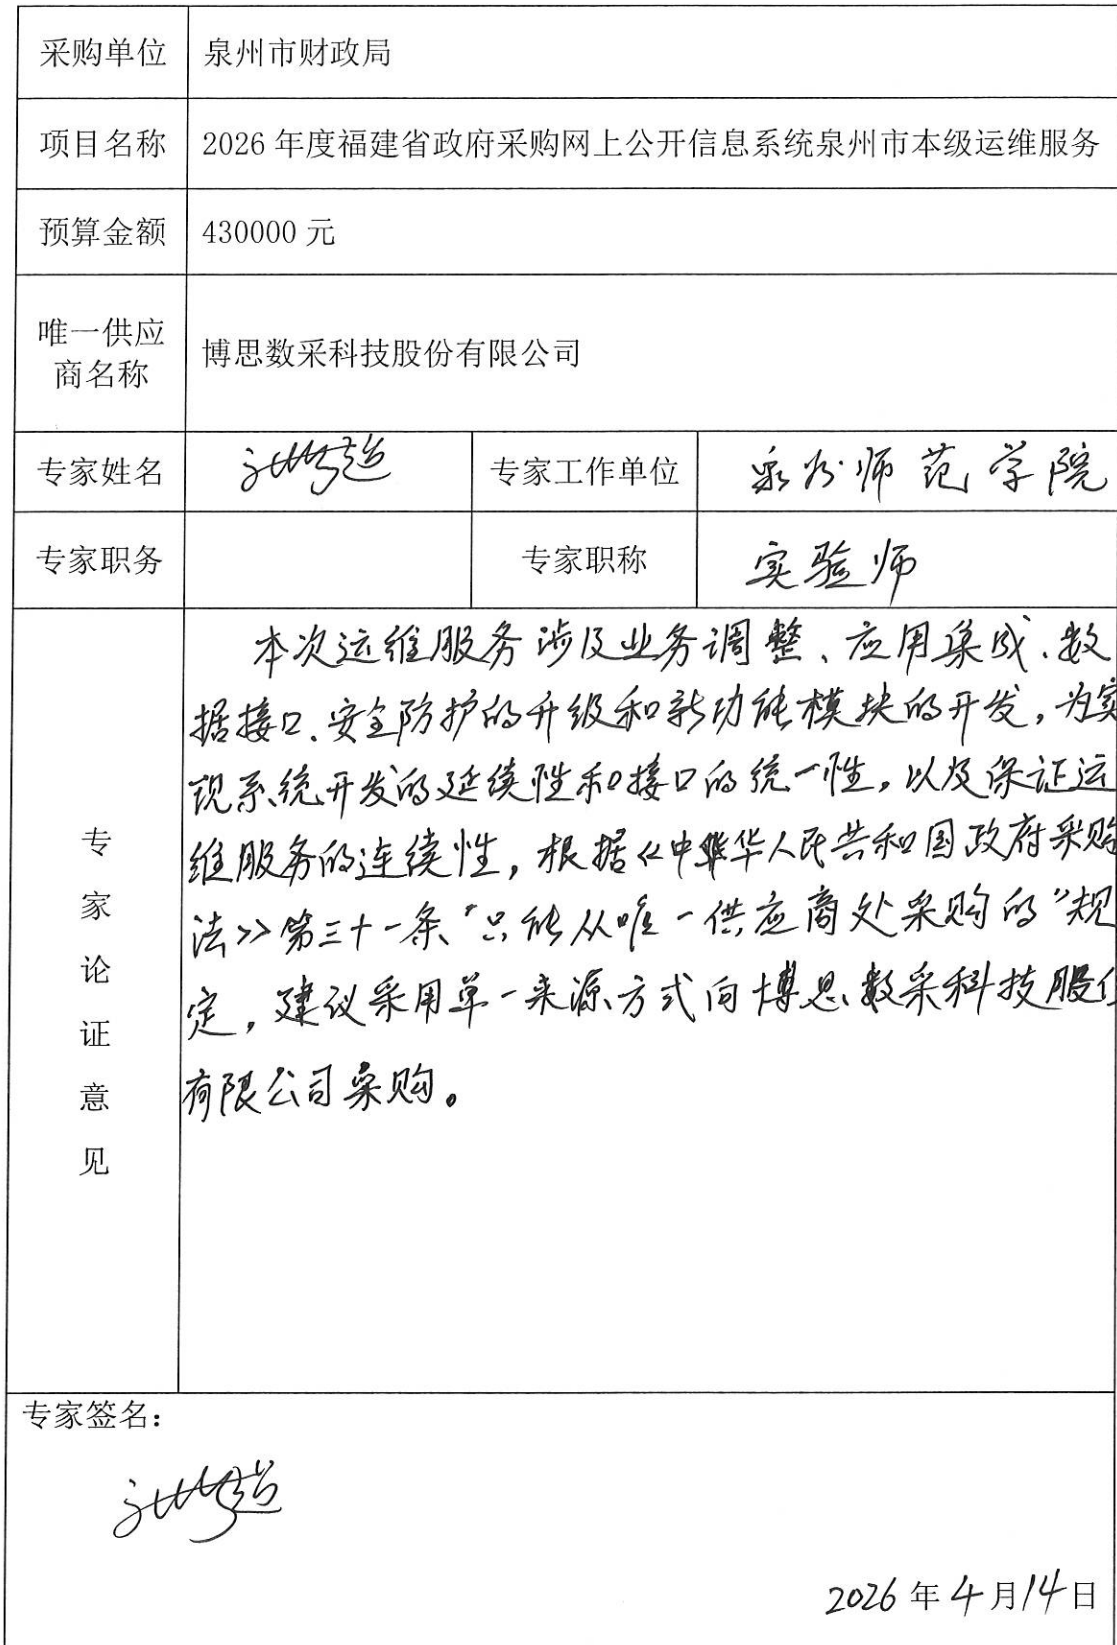 采购单位 泉州市财政局
项目名称 2026年度福建省政府采购网上公开信息系统泉州市本级运维服务
预算金额 430000元
唯一供应
商名称
博思数采科技股份有限公司
专家姓名 专家工作单位 泉州师范学院
专家职务 专家职称 实验师
专家论证意见
本次运维服务涉及业务调整、应用集成、数
据接口、安全防护的升级和新功能模块的开发,为实
现系统开发的延续性和接口的统一性,以及保证运
维服务的连续性,根据《中华人民共和国政府采购
法》第三十一条“只能从唯一供应商处采购的”规
定,建议采用单一来源方式向博思数采科技股份
有限公司采购。
专家签名:
2026年4月14日